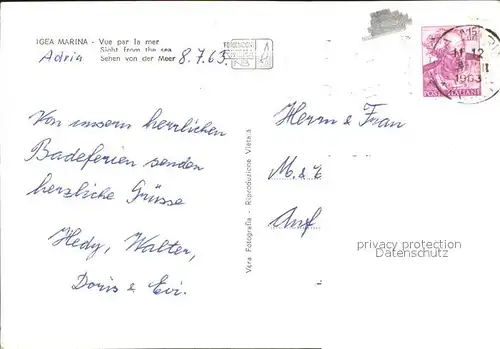 IGEA MARINA - Vue par la mer
Sight from the sea
Adria Sehen von der Meer 8.7.63
1963
POSTE ITALIANE
Von unsern herrlichen
Badeferien senden
herzliche Grüsse
Hedy, Walter,
Doris & Evi.
Vera Fotografia - Riproduzione Vietata
Herrn & Frau
M. &
Auf
privacy protection
Datenschutz